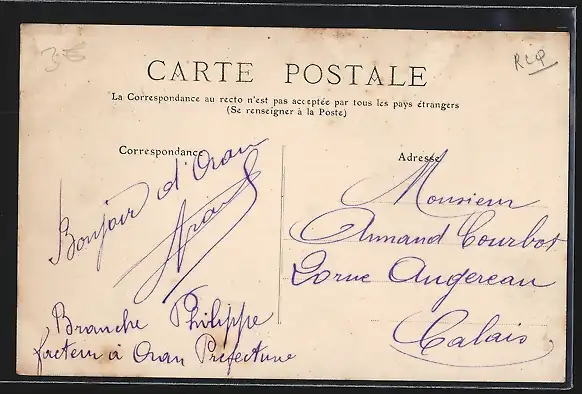 3€
RLP
CARTE POSTALE
La Correspondance au recto n'est pas acceptée par tous les pays étrangers
(Se renseigner à la Poste)
Correspondance
Bonjour d'Oran
Branche Philippe
facteur à Oran Préfecture
Adresse
Monsieur
Armand Courbot
rue Augereau
Calais